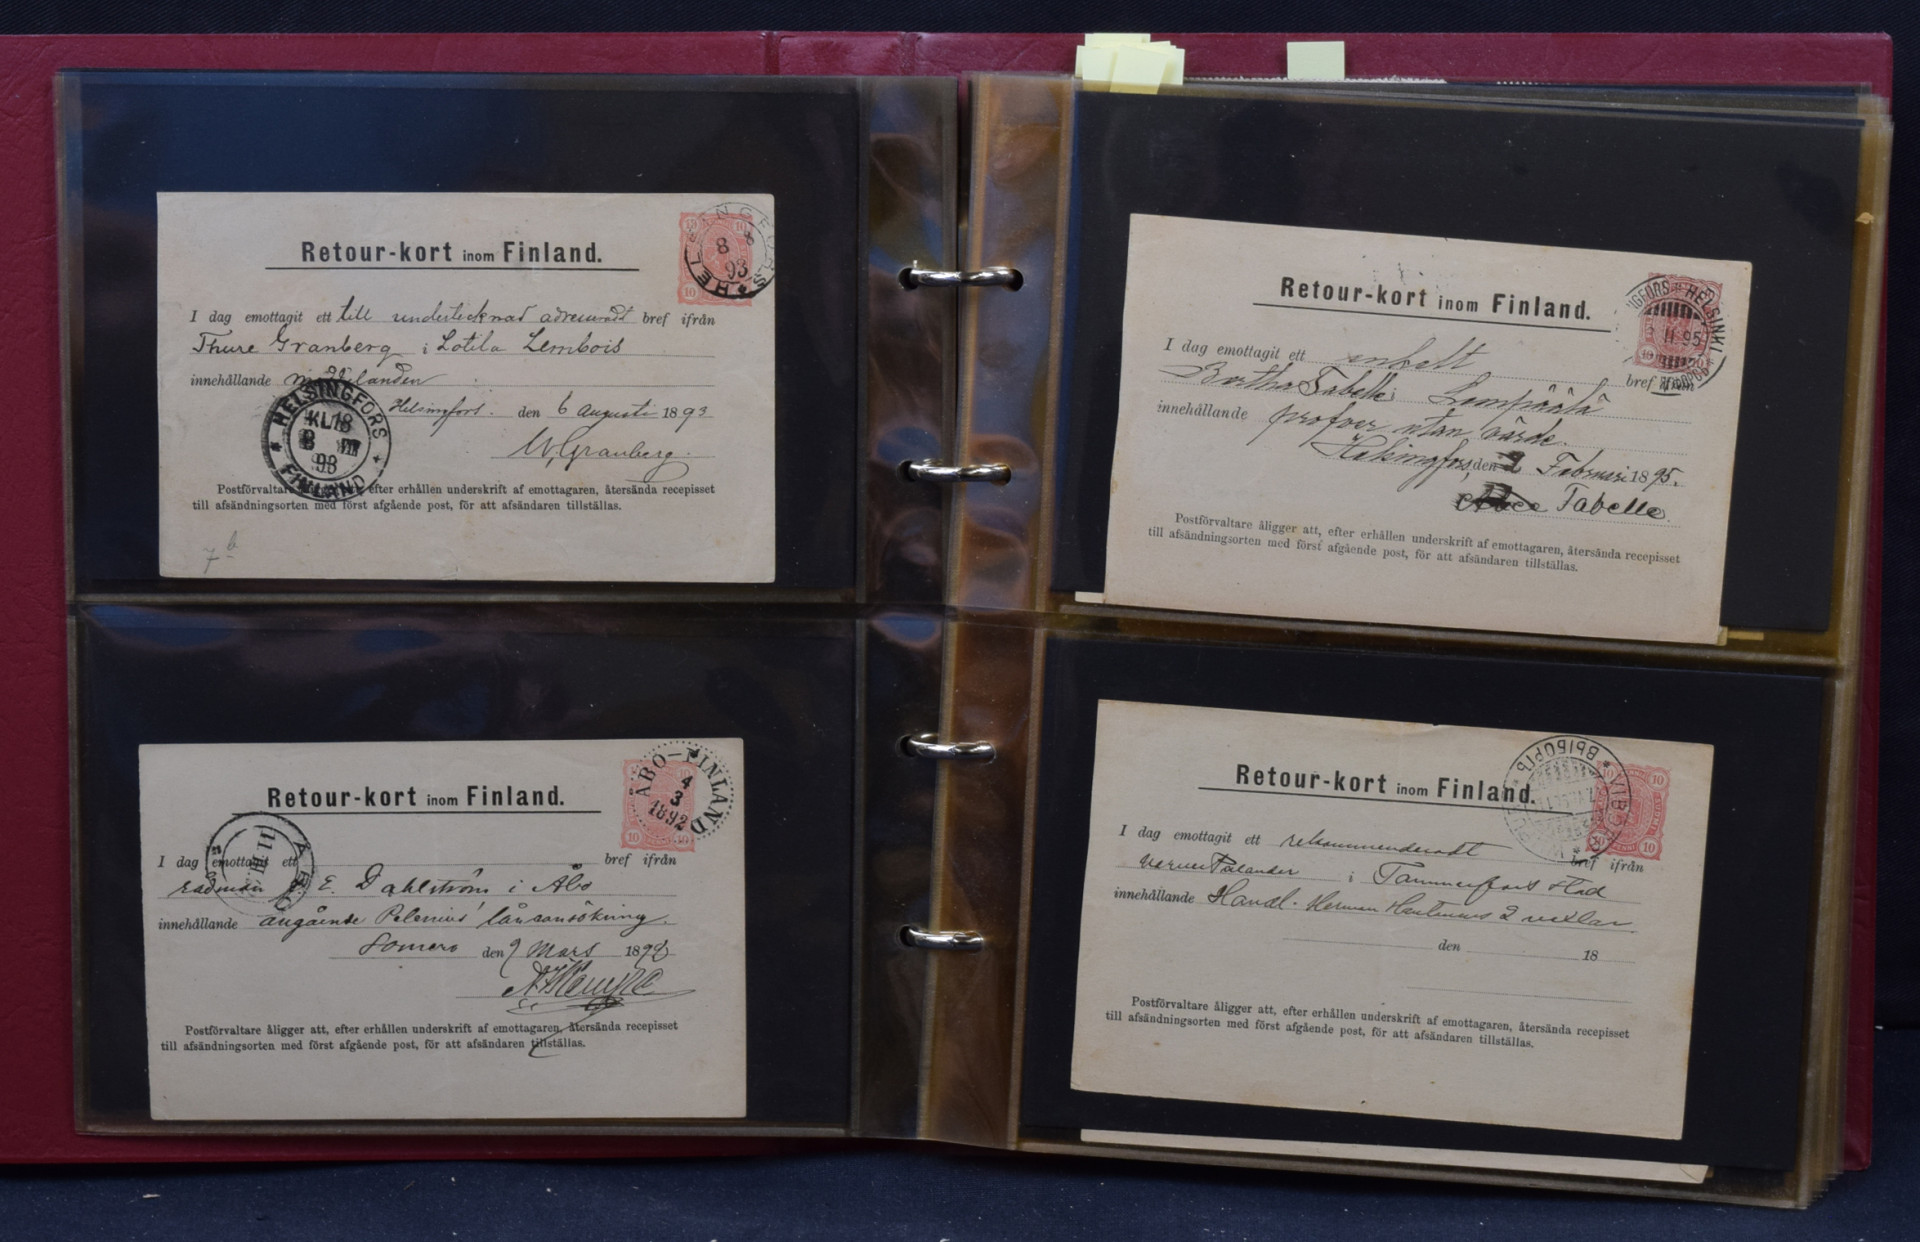 Retour-kort inom Finland.
HELSINGFORS
8
93
10 10
10
I dag emottagit ett till undertecknad adresseradt bref ifrån
Thure Granberg i Lotila Lembois
innehållande
HELSINGFORS
KL 18
8 VIII
93
FINLAND
Helsingfors. den 6 augusti 1893
W. Granberg.
Postförvaltare åligger att, efter erhållen underskrift af emottagaren, återsända recepisset
till afsändningsorten med först afgående post, för att afsändaren tillställas.
7 b
Retour-kort inom Finland.
ÅBO-FINLAND
4
3
1892
10 10
I dag emottagit ett bref ifrån
E. Dahlström i Åbo
innehållande angående Pelenius' låneansökning.
Somero den 9 Mars 1892
Postförvaltare åligger att, efter erhållen underskrift af emottagaren, återsända recepisset
till afsändningsorten med först afgående post, för att afsändaren tillställas.
Retour-kort inom Finland.
HELSINKI
II 95
I dag emottagit ett enkelt bref ifrån
Bertha Tabelle i Lempäälä
innehållande profver utan värde.
Helsingfors, den 2 Februari 1895.
Tabelle.
Postförvaltare åligger att, efter erhållen underskrift af emottagaren, återsända recepisset
till afsändningsorten med först afgående post, för att afsändaren tillställas.
Retour-kort inom Finland.
ВЫБОРГЪ
10 10
10
I dag emottagit ett rekommenderadt bref ifrån
i Tammerfors stad
innehållande Handl. Herman 2 vexlar
den 18
Postförvaltare åligger att, efter erhållen underskrift af emottagaren, återsända recepisset
till afsändningsorten med först afgående post, för att afsändaren tillställas.